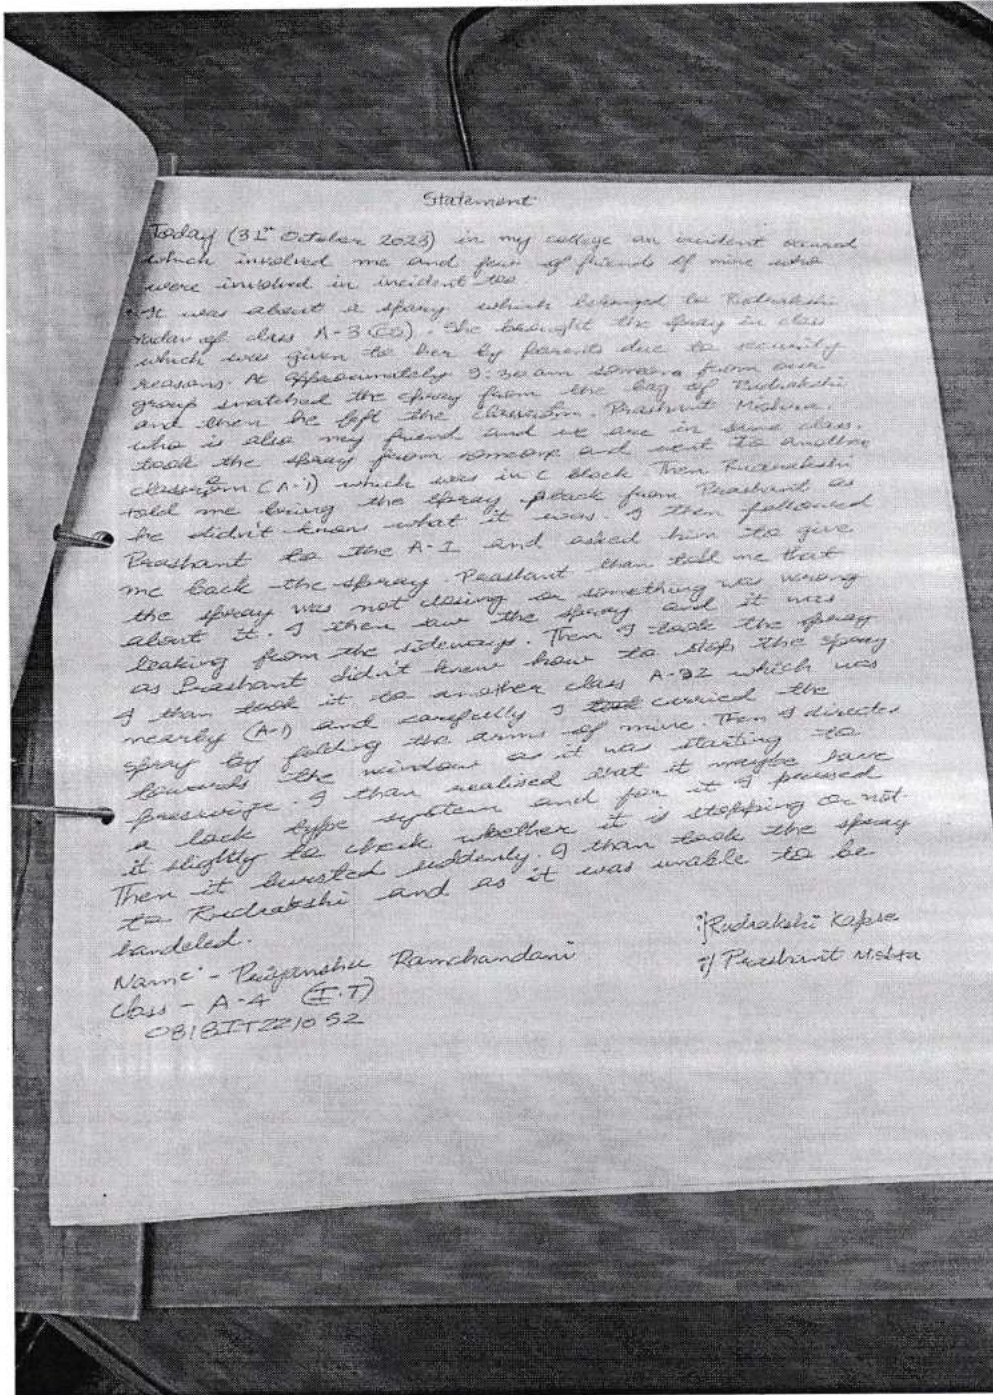 Statement
Today (31st October 2023) in my college an incident occured
which involved me and few of friends of mine who
were involved in incident too
It was about a spary which belonged to Rudrakshi
Yadav of class A-3 (CS). She brought the spray in class
which was given to her by parents due to security
reasons. At approximately 9:30 am someone from our
group snatched the spray from the bag of Rudrakshi
and then he left the classroom. Prashant Mishra.
who is also my friend and we are in same class.
took the spray from someone and went to another
classroom (A-1) which was in C block. Then Rudrakshi
told me bring the spray back from Prashant as
he didn't know what it was. I then followed
Prashant to the A-1 and asked him to give
me back the spray. Prashant than told me that
the spray was not closing or something was wrong
about it. I then saw the spray and it was
leaking from the sideways. Then I took the spray
as Prashant didn't knew how to stop the spray
I than took it to another class A-32 which was
nearby (A-1) and carefully I took carried the
spray by folding the arms of mine. Then I directed
towards the window as it was starting to
pressurize. I than realised that it maybe have
a lock type system and for it I pressed
it slightly to check whether it is stopping or not.
Then it bursted suddenly. I than took the spray
to Rudrakshi and as it was unable to be
handeled.
i) Rudrakshi Kapse
Name - Priyanshu Ramchandani
ii) Prashant Mishra
Class - A-4 (I.T)
0818IT221052